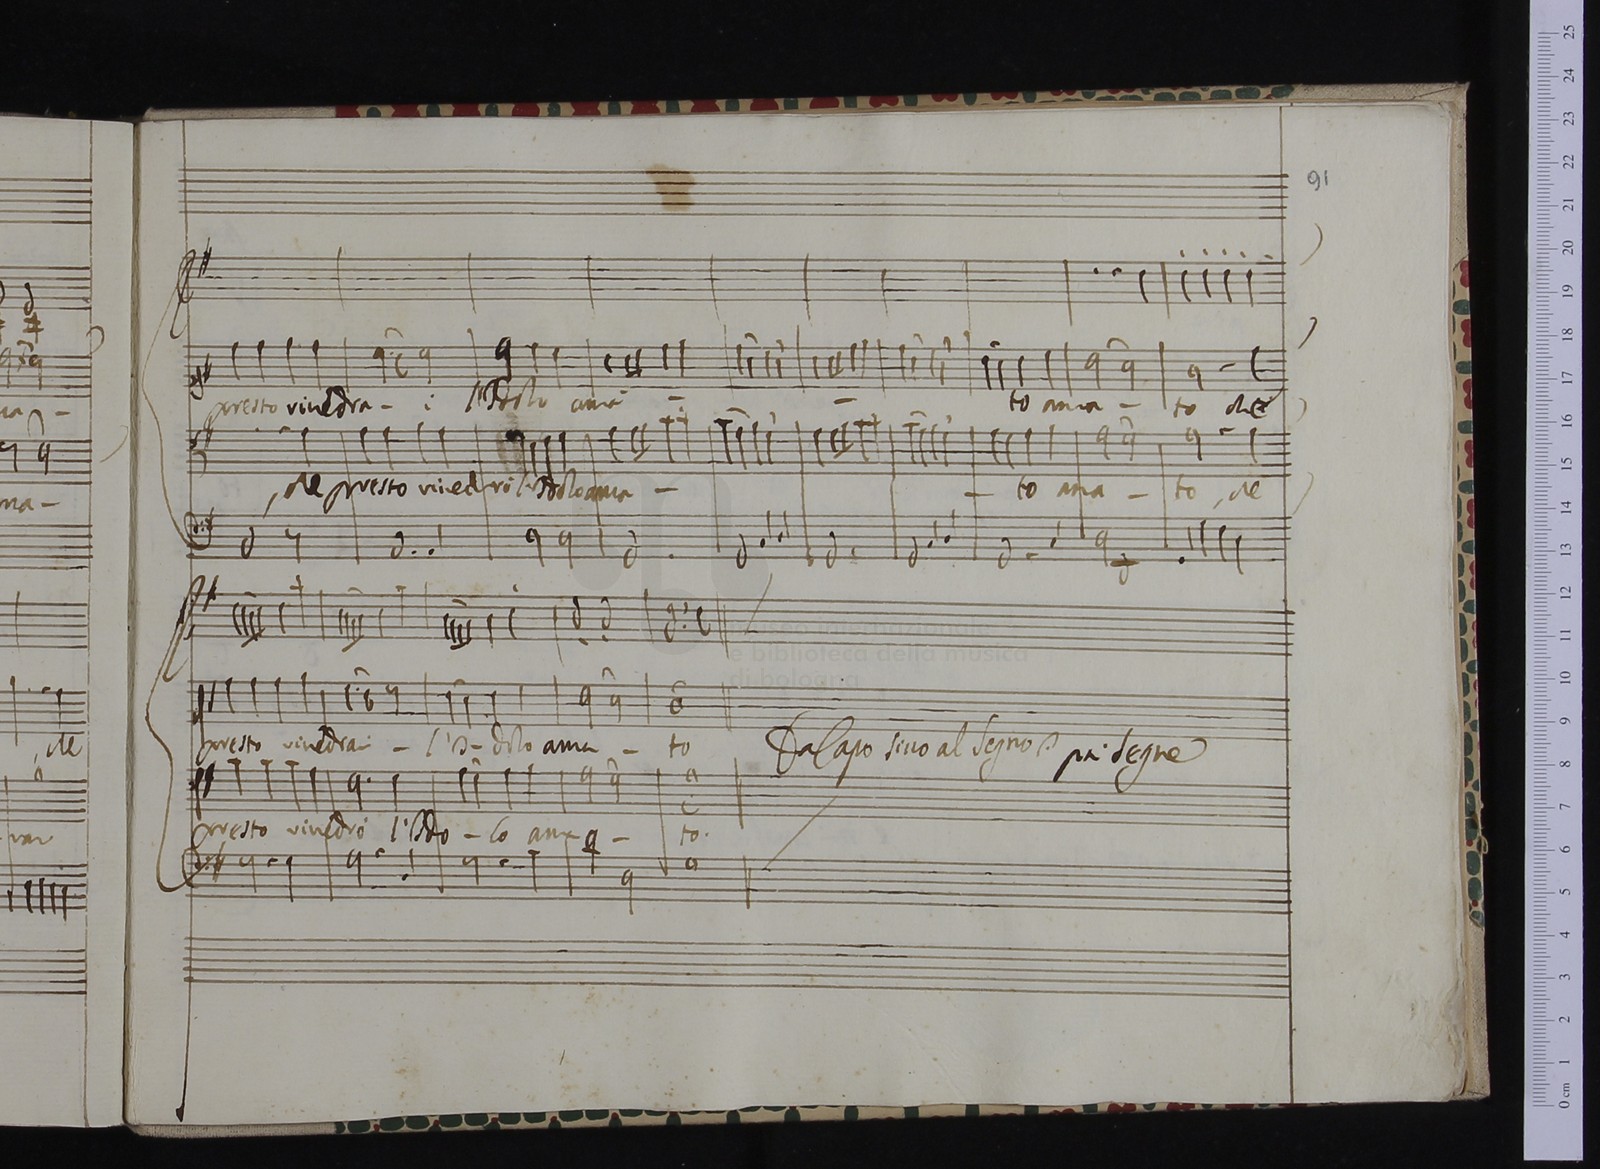 91
presto vinedra - i l'Idolo ama - - to ama - to che
, che presto vinedrò l'Idolo ama - - to ama - to, che
presto vinedrai - l'I - dolo ama - to
Da Capo sino al Segno poi segue
presto vinedrò l'Ido - lo ama - to.
ma -
ma -
, che
museo internazionale
e biblioteca della musica
di bologna
0 cm 1 2 3 4 5 6 7 8 9 10 11 12 13 14 15 16 17 18 19 20 21 22 23 24 25